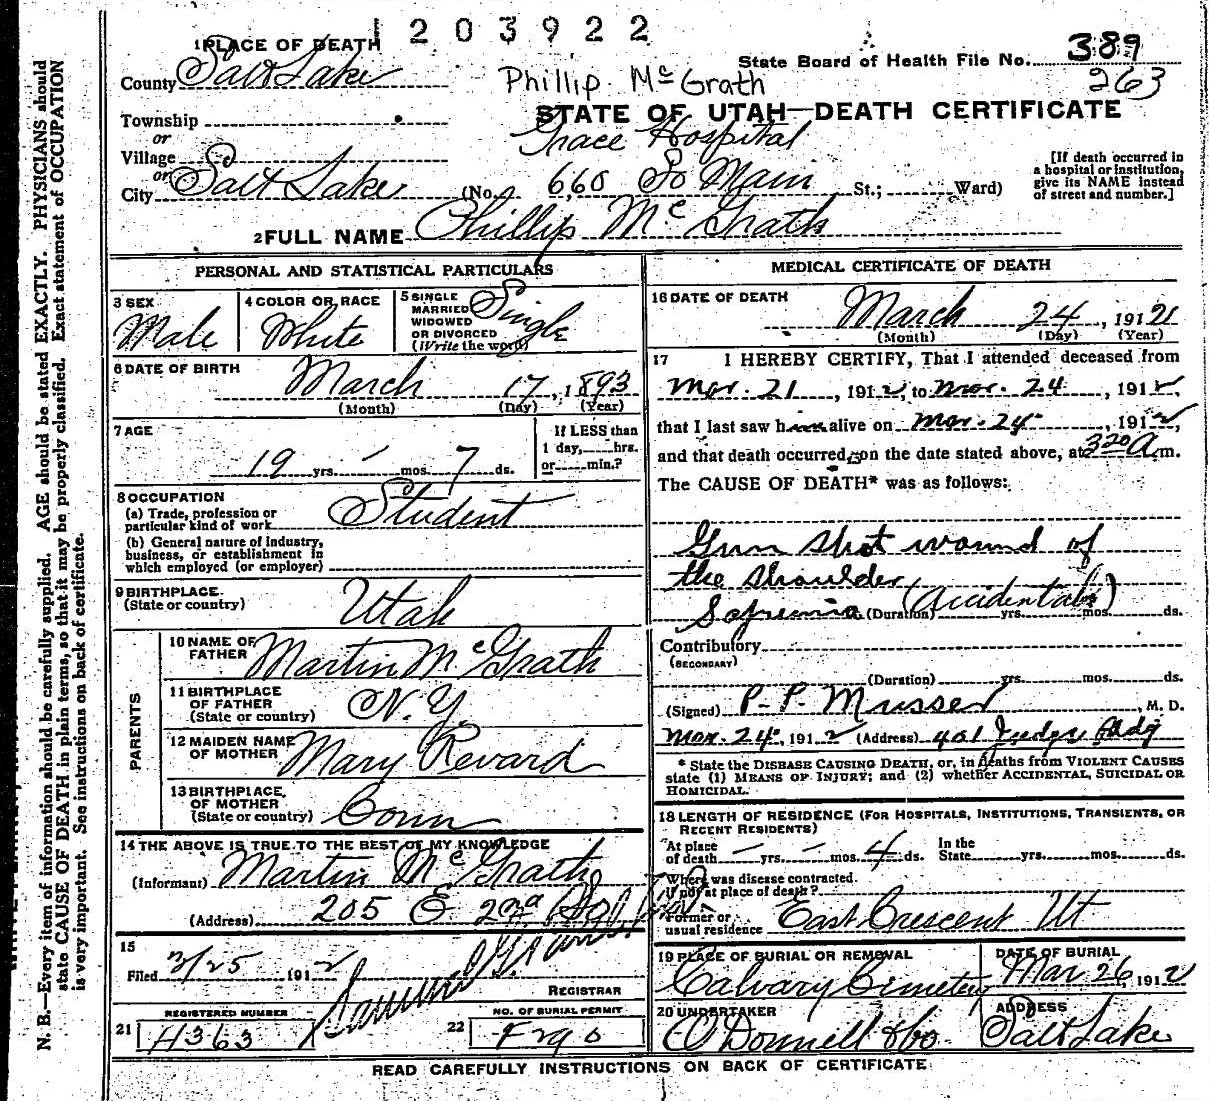 1203922
1 PLACE OF DEATH
County Salt Lake
State Board of Health File No. 389
263
Phillip McGrath
STATE OF UTAH—DEATH CERTIFICATE
Township
or
Village
or
City Salt Lake (No. 660 So Main St.; Ward)
Grace Hospital
[If death occurred in
a hospital or institution,
give its NAME instead
of street and number.]
2 FULL NAME Phillip McGrath
PERSONAL AND STATISTICAL PARTICULARS
3 SEX
Male
4 COLOR OR RACE
White
5 SINGLE
MARRIED
WIDOWED
OR DIVORCED
(Write the word)
Single
6 DATE OF BIRTH
March 17, 1893
(Month) (Day) (Year)
7 AGE
19 yrs. - mos. 7 ds.
If LESS than
1 day, hrs.
or min.?
8 OCCUPATION
(a) Trade, profession or
particular kind of work Student
(b) General nature of industry,
business, or establishment in
which employed (or employer)
9 BIRTHPLACE
(State or country) Utah
PARENTS
10 NAME OF
FATHER Martin McGrath
11 BIRTHPLACE
OF FATHER
(State or country) N.Y.
12 MAIDEN NAME
OF MOTHER Mary Revard
13 BIRTHPLACE
OF MOTHER
(State or country) Conn
14 THE ABOVE IS TRUE TO THE BEST OF MY KNOWLEDGE
(Informant) Martin McGrath
(Address) 205 E 2nd So
15
Filed 3/25 1912
REGISTRAR
21 REGISTERED NUMBER
H363
22 NO. OF BURIAL PERMIT
MEDICAL CERTIFICATE OF DEATH
16 DATE OF DEATH
March 24, 1912
(Month) (Day) (Year)
17 I HEREBY CERTIFY, That I attended deceased from
Mar. 21, 1912, to Mar. 24, 1912,
that I last saw him alive on Mar. 24, 1912,
and that death occurred, on the date stated above, at 3 20 A m.
The CAUSE OF DEATH* was as follows:
Gun shot wound of
the shoulder
(Accidental)
(Duration) yrs. mos. ds.
Contributory
(SECONDARY)
(Duration) yrs. mos. ds.
(Signed) P. P. Musser, M. D.
Mar. 24, 1912 (Address) 401 Judge Bldg
* State the DISEASE CAUSING DEATH, or, in deaths from VIOLENT CAUSES
state (1) MEANS OF INJURY; and (2) whether ACCIDENTAL, SUICIDAL OR
HOMICIDAL.
18 LENGTH OF RESIDENCE (FOR HOSPITALS, INSTITUTIONS, TRANSIENTS, OR
RECENT RESIDENTS)
At place
of death - yrs. - mos. 4 ds. In the
State yrs. mos. ds.
Where was disease contracted.
If not at place of death?
Former or
usual residence East Crescent Ut
19 PLACE OF BURIAL OR REMOVAL
Calvary Cemetery
DATE OF BURIAL
Mar 26, 1912
20 UNDERTAKER
O'Donnell & Co.
ADDRESS
Salt Lake
READ CAREFULLY INSTRUCTIONS ON BACK OF CERTIFICATE
N. B.—Every item of information should be carefully supplied. AGE should be stated EXACTLY. PHYSICIANS should
state CAUSE OF DEATH in plain terms, so that it may be properly classified. Exact statement of OCCUPATION
is very important. See instructions on back of certificate.